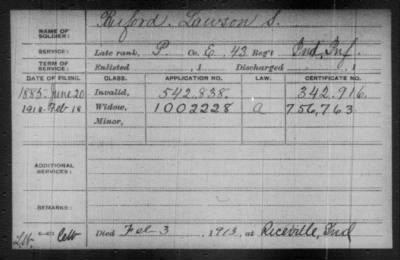 NAME OF SOLDIER: Ruford, Lawson S.
SERVICE: Late rank, P. Co. E, 43 Reg't Ind. Inf.
TERM OF SERVICE: Enlisted , 1 Discharged , 1
DATE OF FILING. CLASS. APPLICATION NO. LAW. CERTIFICATE NO.
1885-June 20 Invalid, 542.838. 342.916.
1918-Feb 18 Widow, 1002228 a 756,763
Minor,
ADDITIONAL SERVICES:
REMARKS:
Died Feb 3, 1913, at Riceville, Ind